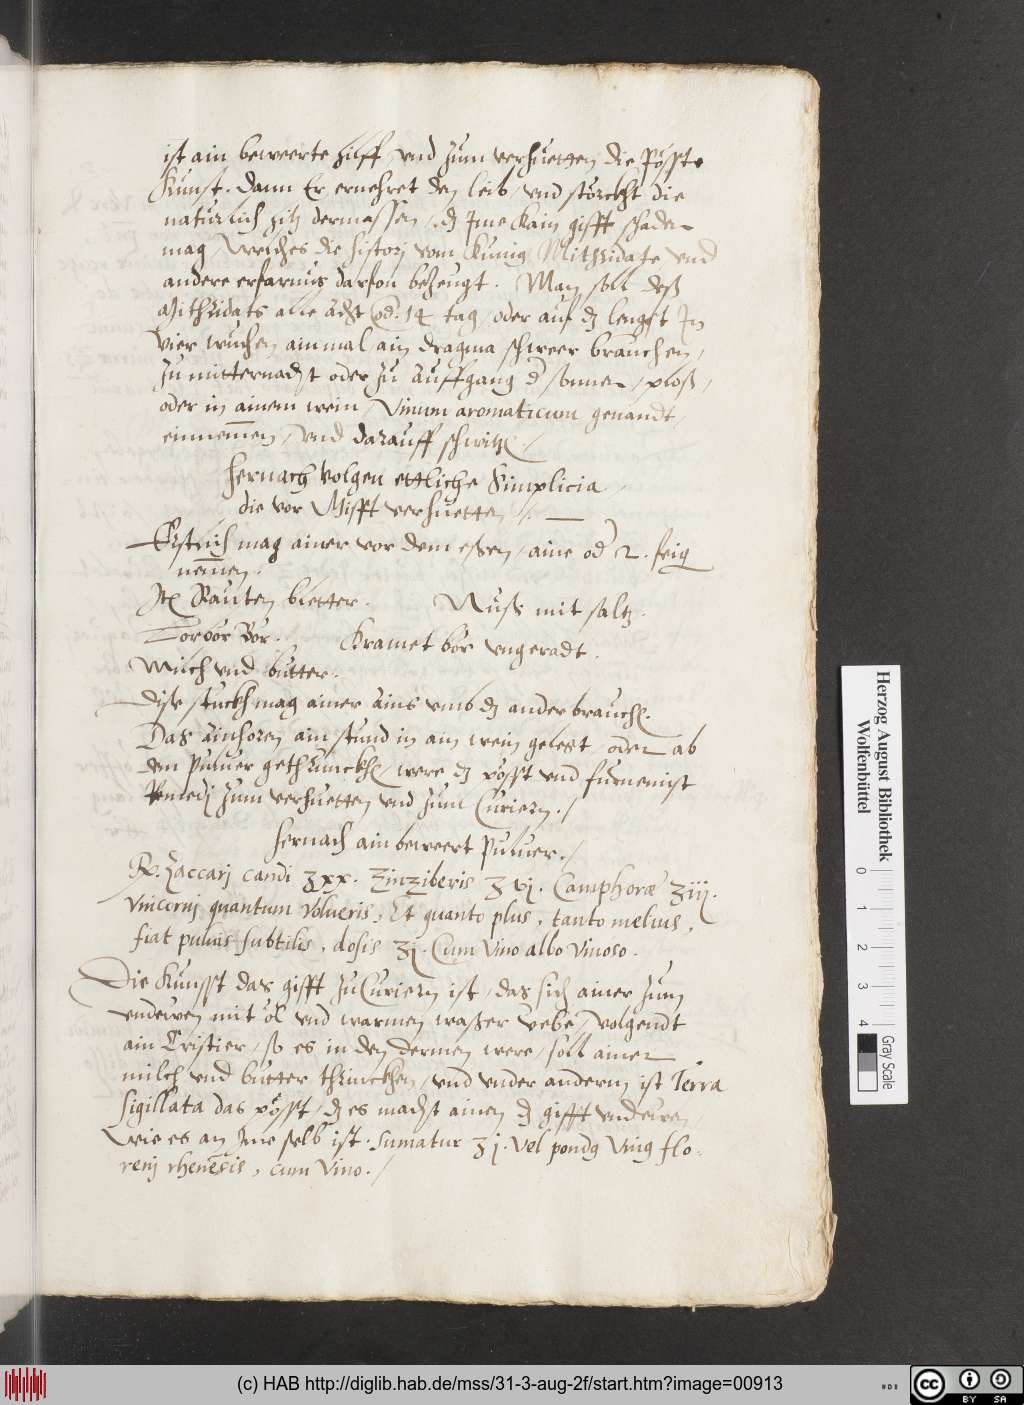 ist ain beweerte hilff, vnd zum verhuetten die pösste
Kunst. Dann Er ernehret den leib, vnd störckht die
naturlich hitz dermassen, dz Jme kain gifft schaden
mag, welches die histori vom Künig Mithridate vnd
andere erfarnus darfon bezeugt. Man soll deß
Mithridats alle acht od. 14 tag, oder auf dz lengst Jn
vier wuchen ainmal ain dragma schweer brauchen,
zu mitternacht oder zu auffgang d sonnen, ploß,
oder in ainem wein, Vinum aromaticum genandt,
einnemen, vnd darauff schwitz.
Hernach volgen ettliche Simplicia
die vor Gifft verhuetten.
Erstlich mag ainer vor dem essen, aine od 2. feig
nemen.
Jt Rauten bletter. Nuss mit saltz.
Lorbör Bör. Kramet bör vngeradt.
Milch vnd butter.
Dise stuckh mag ainer ains vmb dz ander brauch.
Das ainhoren ain stund in ain wein gelegt oder ab
den puluer gethrunckh, were dz pösst vnd furnemist
Remedj zum verhuetten vnd zum Curiern.
Hernach ain beweert puluer.
Rp. Zaccarj candi ʒxx. Zinziberis ʒvj. Camphoræ ʒiij.
Vnicornj quantum volueris, Et quanto plus, tanto melius,
fiat puluis subtilis, dosis ʒj. Cum vino albo vinoso.
Die Kunsst das gifft zu Curiern ist, das sich ainer zum
vndewen mit öl vnd warmen waßer vebe, volgendt
ain Cristier, so es in den dermen were, soll ainer
milch vnd butter thrinckhen, vnd vnder andern ist Terra
sigillata das pösst, dz es macht ainen dz gifft vndewen,
wie es an Jme selb ist. Sumatur ʒj. vel pondg vnig flo-
renj rhenesis, cum vino.
Herzog August Bibliothek
Wolfenbüttel
0 1 2 3 4
Gray Scale
(c) HAB http://diglib.hab.de/mss/31-3-aug-2f/start.htm?image=00913
HAB
cc BY SA